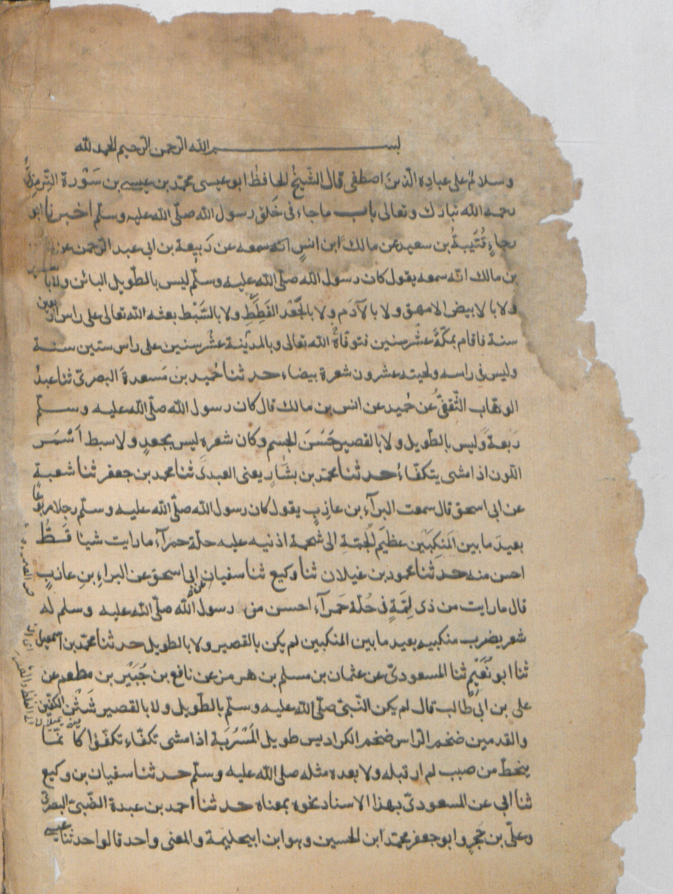 بسم الله الرحمن الرحيم الحمد لله
وسلام على عباده الذين اصطفى قال الشيخ الحافظ ابو عيسى محمد بن عيسى بن سورة الترمذى
رحمه الله تبارك وتعالى باب ماجاء فى خلق رسول الله صلى الله عليه وسلم اخبرنا ابو
رجاء قتيبة بن سعيد عن مالك ابن انس انه سمعه عن ربيعة بن ابى عبد الرحمن عن
بن مالك انه سمعه يقول كان رسول الله صلى الله عليه وسلم ليس بالطويل البائن ولا
ولا بالابيض الامهق ولا بالآدم ولا بالجعد القطط ولا بالسبط بعثه الله تعالى على راس اربعين
سنة فاقام بمكة عشر سنين فتوفاه الله تعالى وبالمدينة عشر سنين على راس ستين سنة
وليس فى راسه ولحيته عشرون شعرة بيضاء حدثنا حميد بن مسعدة البصرى ثنا عبد
الوهاب الثقفى عن حميد عن انس بن مالك قال كان رسول الله صلى الله عليه وسلم
ربعة وليس بالطويل ولا بالقصير حسن الجسم وكان شعره ليس بجعد ولا سبط اسمر
اللون اذا مشى يتكفاء حدثنا محمد بن بشار يعنى العبدى ثنا محمد بن جعفر ثنا شعبة
عن ابى اسحق قال سمعت البرآء بن عازب يقول كان رسول الله صلى الله عليه وسلم رجلا مربوعا
بعيد ما بين المنكبين عظيم الجمة الى شحمة اذنيه عليه حلة حمرآء مارايت شيا قط
احسن منه حدثنا محمود بن غيلان ثنا وكيع ثنا سفيان عن ابى اسحق عن البراء بن عازب
قال مارايت من ذى لمة فى حلة حمرآء احسن من رسول الله صلى الله عليه وسلم له
شعر يضرب منكبيه بعيد ما بين المنكبين لم يكن بالقصير ولا بالطويل حدثنا محمد بن اسمعيل
ثنا ابو نعيم ثنا المسعودى عن عثمان بن مسلم بن هرمز عن نافع بن جبير بن مطعم عن
على بن ابى طالب قال لم يكن النبى صلى الله عليه وسلم بالطويل ولا بالقصير شثن الكفين
والقدمين ضخم الراس ضخم الكراديس طويل المسربة اذا مشى تكفاء تكفوا كانما
ينحط من صبب لم ار قبله ولا بعده مثله صلى الله عليه وسلم حدثنا سفيان بن وكيع
ثنا ابى عن المسعودى بهذا الاسناد نحوه بمعناه حدثنا احمد بن عبدة الضبى البصرى
وعلى بن حجر وابو جعفر محمد ابن الحسين وهو ابن ابى حليمة والمعنى واحد قالوا حدثنا عيسى